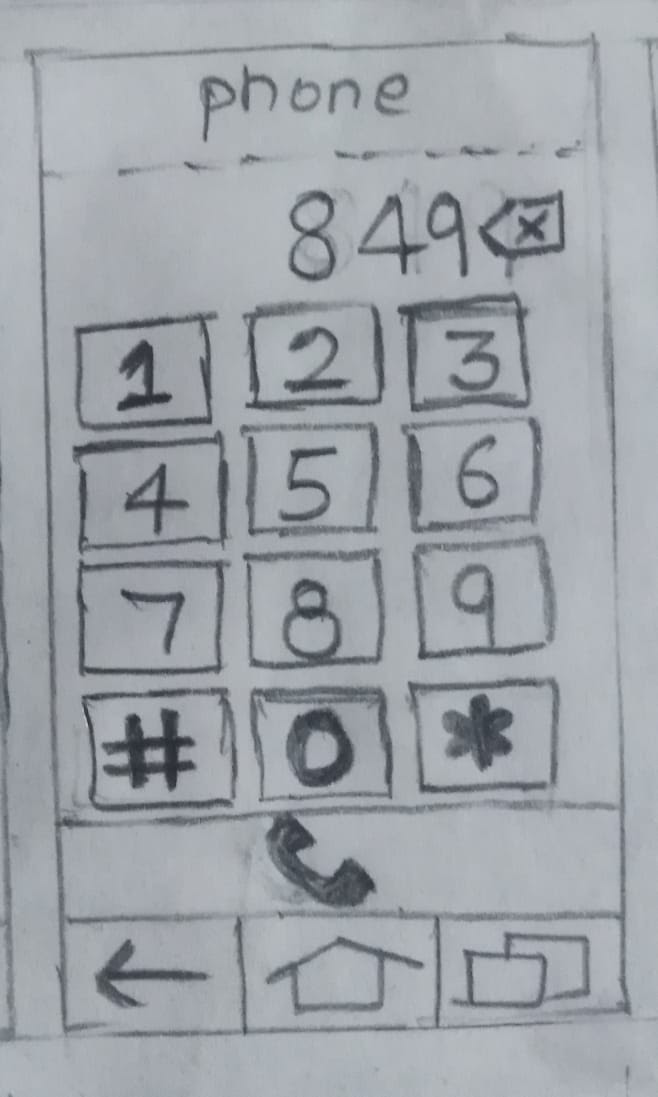 phone
849
1 2 3
4 5 6
7 8 9
# 0 *